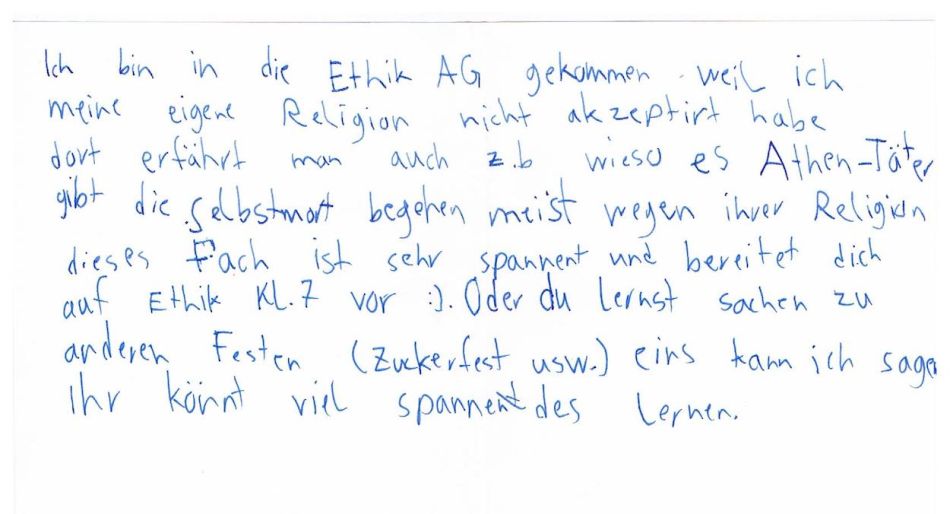 Ich bin in die Ethik AG gekommen weil ich
meine eigene Religion nicht akzeptirt habe
dort erfährt man auch z.b wieso es Athen-Täter
gibt die Selbstmort begehen meist wegen ihrer Religion
dieses Fach ist sehr spannent und bereitet dich
auf Ethik Kl. 7 vor :). Oder du lernst sachen zu
anderen Festen (Zuckerfest usw.) eins kann ich sagen
Ihr könnt viel spannentdes lernen.